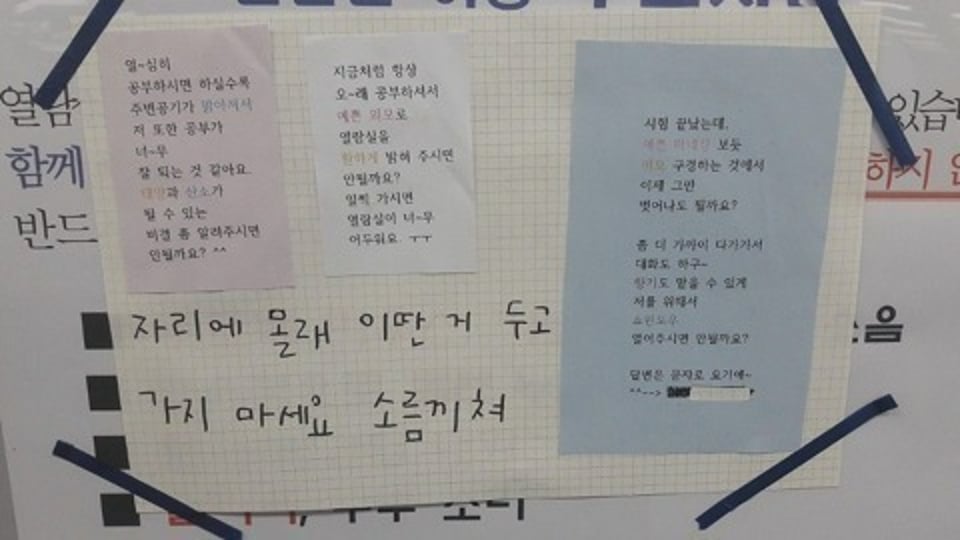 열~심히
공부하시면 하실수록
주변공기가 맑아져서
저 또한 공부가
너~무
잘 되는 것 같아요.
태양과 산소가
될 수 있는
비결 좀 알려주시면
안될까요? ^^
지금처럼 항상
오~래 공부하셔서
예쁜 외모로
열람실을
환하게 밝혀 주시면
안될까요?
일찍 가시면
열람실이 너~무
어두워요. ㅜㅜ
시험 끝났는데,
예쁜 마네킹 보듯
외모 구경하는 것에서
이제 그만
벗어나도 될까요?
좀 더 가까이 다가가서
대화도 하구~
향기도 맡을 수 있게
저를 위해서
쇼윈도우
열어주시면 안될까요?
답변은 문자로 요기에~
^^-->
자리에 몰래 이딴 거 두고
가지 마세요 소름끼쳐
열람
함께
반드
하지
음